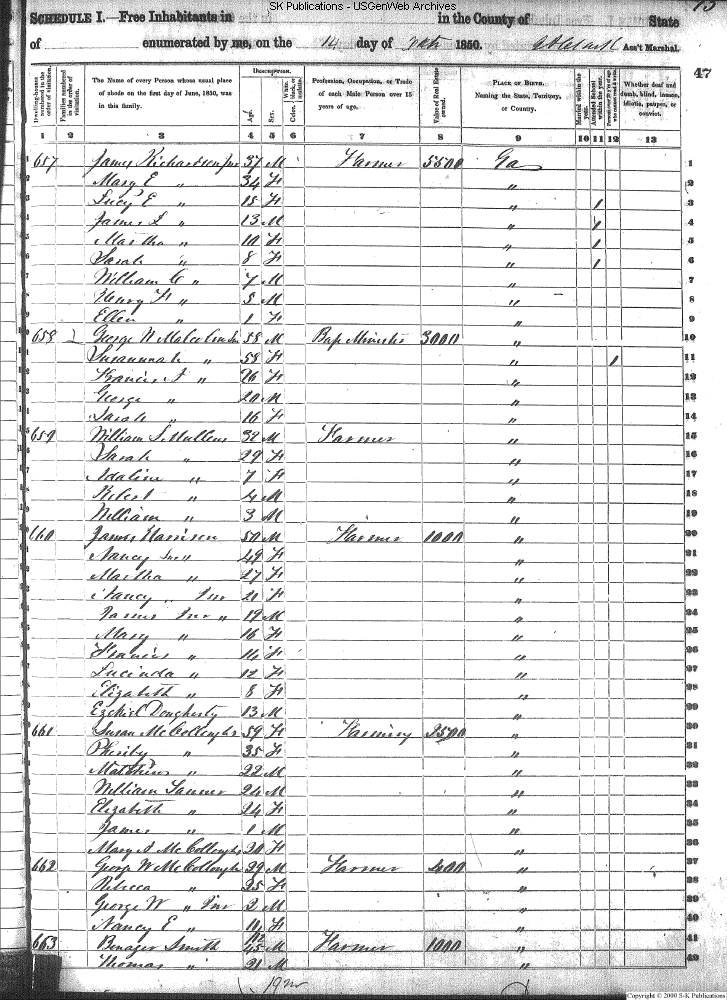 SK Publications - USGenWeb Archives
SCHEDULE I.—Free Inhabitants in in the County of State
of enumerated by me, on the 14 day of 1850. Ass't Marshal.
47
Dwelling-houses numbered in the order of visitation. Families numbered in the order of visitation. The Name of every Person whose usual place of abode on the first day of June, 1850, was in this family. Description. Age. Sex. White, black, or mulatto. Color. Profession, Occupation, or Trade of each Male Person over 15 years of age. Value of Real Estate owned. Place of Birth. Naming the State, Territory, or Country. Married within the year. Attended School within the year. Persons over 20 y'rs of age who cannot read & write. Whether deaf and dumb, blind, insane, idiotic, pauper, or convict.
1 2 3 4 5 6 7 8 9 10 11 12 13
657 James Richardson Jnr 37 M Farmer 5500 Ga 1
Mary E " 34 F " 2
Lucy E " 15 F " 1 3
James " 13 M " 1 4
Martha " 10 F " 1 5
Sarah " 8 F " 1 6
William C " 7 M " 7
Henry H " 5 M " 8
Ellen " 1 F " 9
658 George W Malcolm Snr 58 M Bap Minister 3000 " 10
Susannah " 58 F " 1 11
Francis A " 26 F " 12
George " 20 M " 13
Sarah " 16 F " 14
659 William S. Mullens 32 M Farmer " 15
Sarah " 29 F " 16
Adaline " 7 F " 17
Robert " 4 M " 18
William " 3 M " 19
660 James Harrison 50 M Farmer 1000 " 20
Nancy Snr " 49 F " 21
Martha " 27 F " 22
Nancy " Jnr 21 F " 23
James Jnr " 19 M " 24
Mary " 16 F " 25
Francis " 14 F " 26
Lucinda " 12 F " 27
Elizabeth " 8 F " 28
Ezekiel Dougherty 13 M " 29
661 Susan McCollough 59 F Farming 2500 " 30
Pheriby " 35 F " 31
" 22 M " 32
William Tanner 24 M " 33
Elizabeth " 24 F " 34
James " 1 M " 35
Mary A McCollough 20 F " 36
662 George W McCollough 29 M Farmer 400 " 37
Rebecca " 25 F " 38
George W " Jnr 2 M " 39
Nancy E " F " 40
663 Benager Smith 45 M Farmer 1000 " 41
Thomas " 21 M " 42
Copyright © 2000 S-K Publications